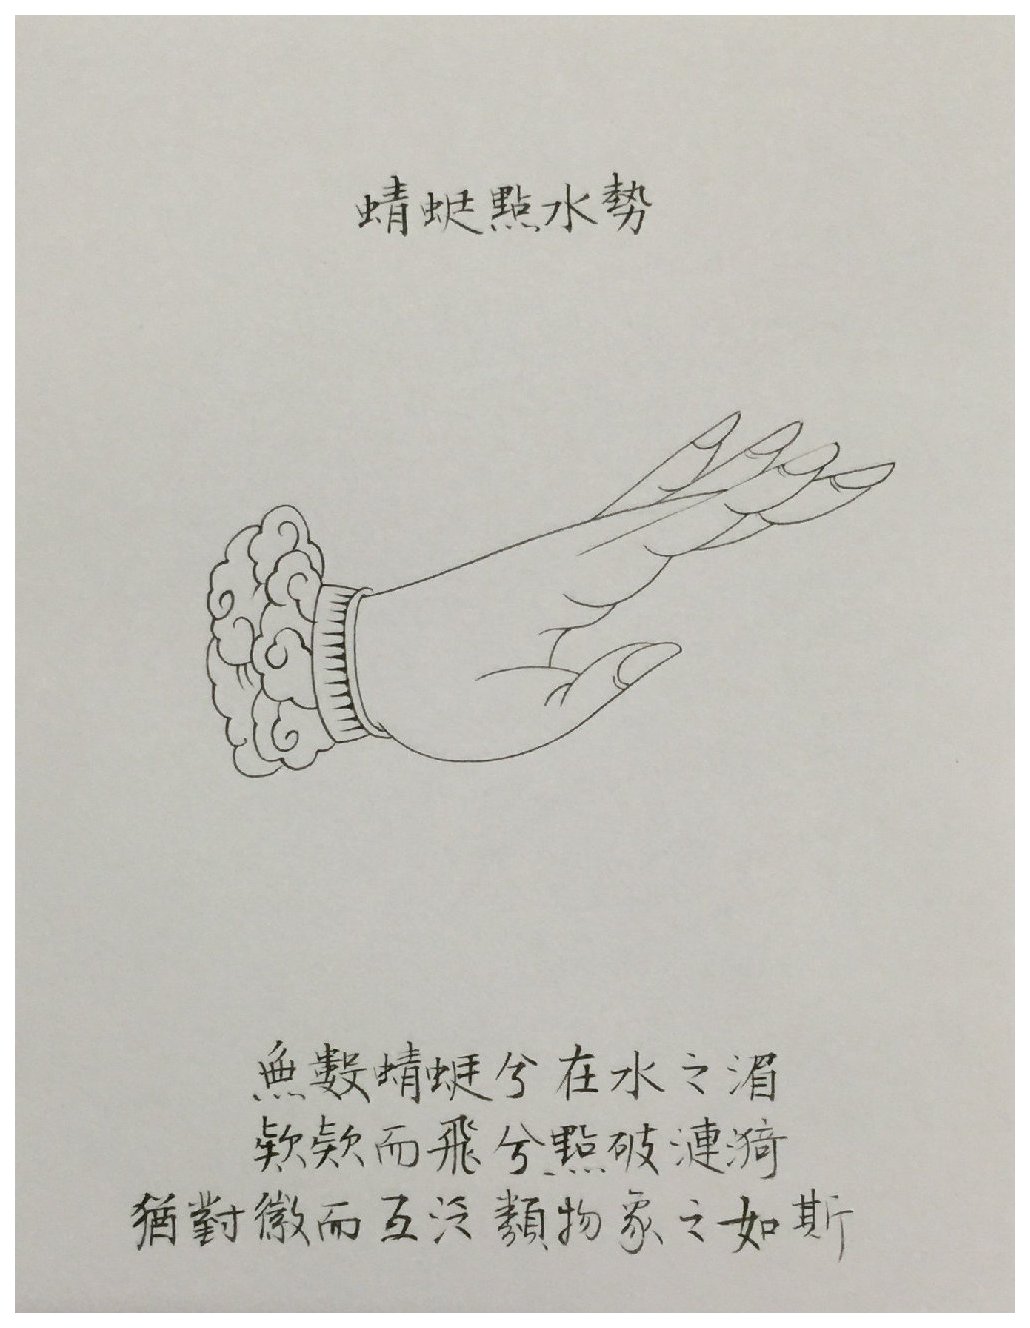 蜻蜓點水勢
無數蜻蜓兮在水之湄
欵欵而飛兮點破漣漪
猶對徽而互泛類物象之如斯